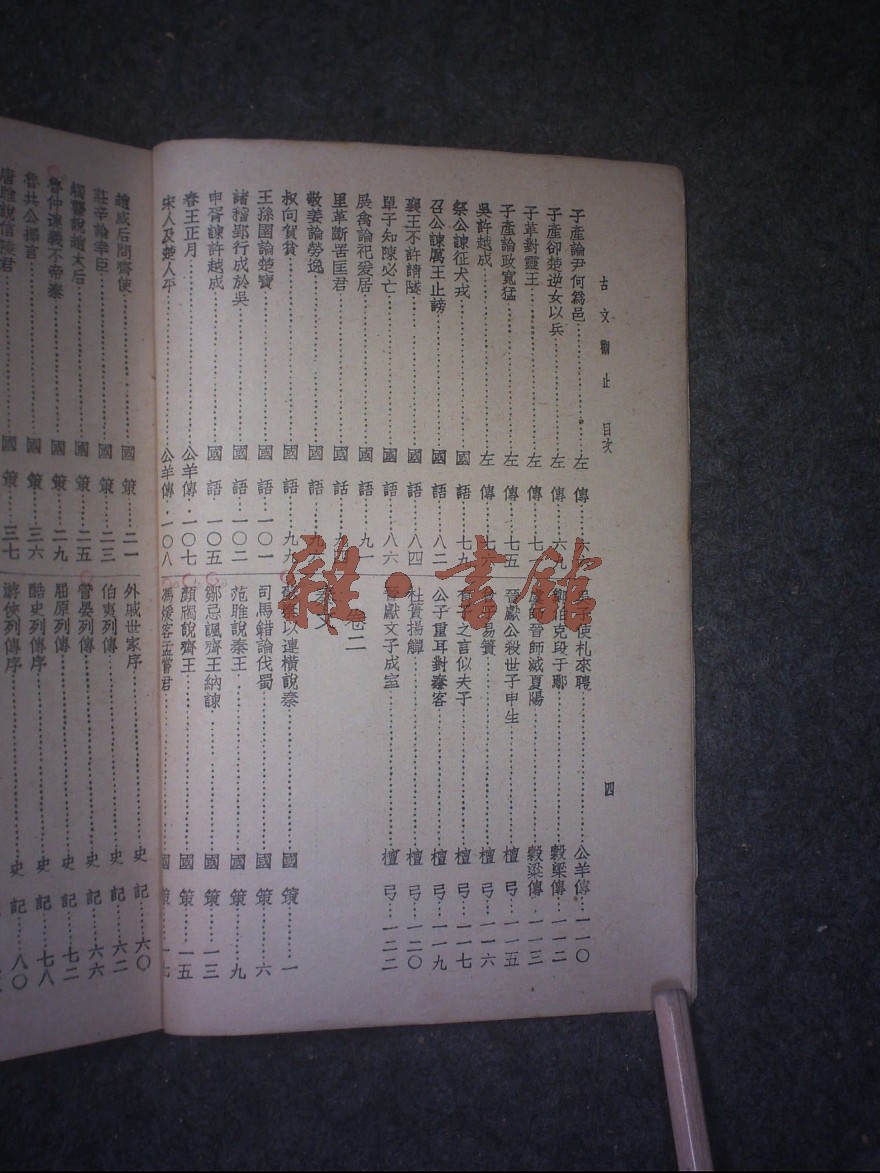 古文觀止 目次
四
子產論尹何爲邑 左傳
子產卻楚逆女以兵 左傳 六九
子革對靈王 左傳
子產論政寬猛 左傳 七五
吳許越成 左傳
祭公諫征犬戎 國語 七九
召公諫厲王止謗 國語 八二
襄王不許請隧 國語 八四
單子知陳必亡 國語 八六
展禽論祀爰居 國語 九一
里革斷罟匡君 國語
敬姜論勞逸 國語
叔向賀貧 國語 九九
王孫圉論楚寶 國語 一〇一
諸稽郢行成於吳 國語 一〇二
申胥諫許越成 國語 一〇五
春王正月 公羊傳 一〇七
宋人及楚人平 公羊傳 一〇八
吳子使札來聘 公羊傳 一一〇
鄭伯克段于鄢 穀梁傳 一一二
虞師晉師滅夏陽 穀梁傳 一一三
晉獻公殺世子申生 檀弓 一一五
曾子易簀 檀弓 一一六
有子之言似夫子 檀弓 一一七
公子重耳對秦客 檀弓 一一九
杜蕢揚觶 檀弓 一二〇
晉獻文子成室 檀弓 一二二
卷二
秦文
蘇秦以連橫說秦 國策 一
司馬錯論伐蜀 國策 六
范雎說秦王 國策 九
鄒忌諷齊王納諫 國策 一三
顏斶說齊王 國策 一五
馮煖客孟嘗君 國策 一七
趙威后問齊使 國策 二一
莊辛論幸臣 國策 二三
觸讋說趙太后 國策 二五
魯仲連義不帝秦 國策 二九
魯共公擇言 國策 三六
唐雎說信陵君 國策 三七
外戚世家序 史記 六〇
伯夷列傳 史記 六二
管晏列傳 史記 六六
屈原列傳 史記 七二
酷吏列傳序 史記 七八
游俠列傳序 史記 八〇
雜·書館